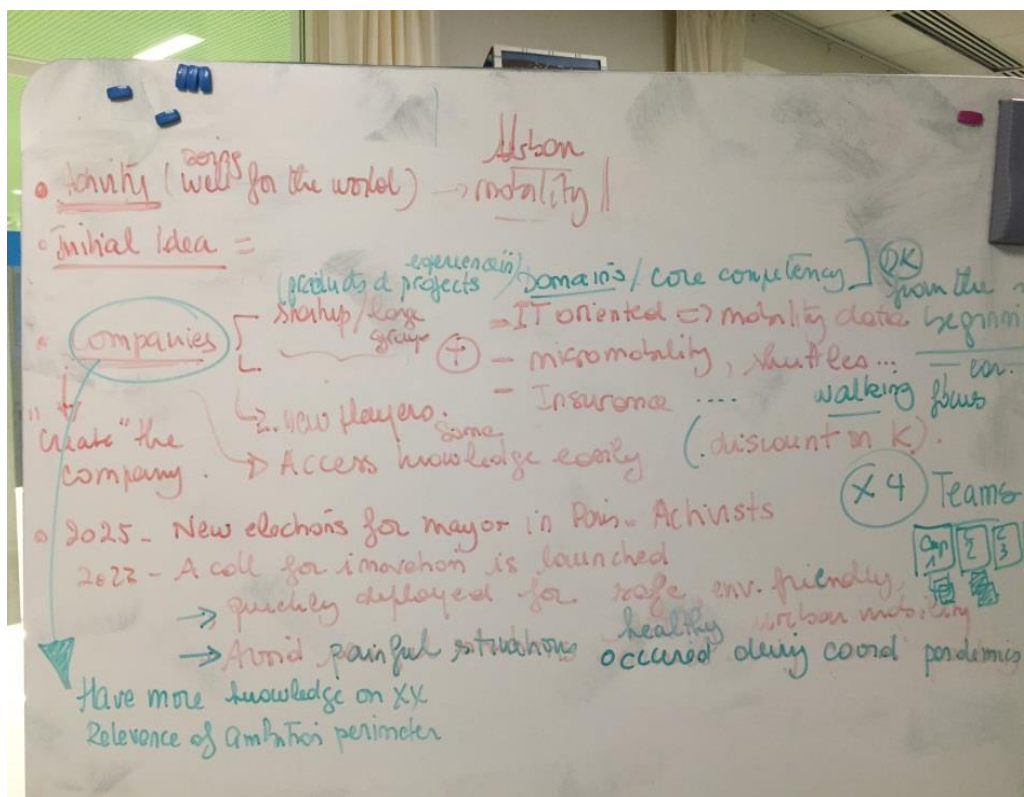 Urban
• Activity (songs well for the world) → mobility
• Initial Idea =
(products & projects experiences/Domains/core competency] DK
from the beginni
• Companies startup/large groups + - IT oriented => mobility data
- micromobility, shuttles... car.
- Insurance .... walking focus
→ new players.
"create" the company.
→ Access some knowledge easily (.discount in K).
X4 Teams
• 2025 - New elections for mayor in Paris - Activists
2022 - A call for innovation is launched
→ quickly deployed for safe, env. friendly, healthy urban mobility
→ Avoid painful situations occured during covid pandemics
Have more knowledge on XX
Relevance of ambition perimeter